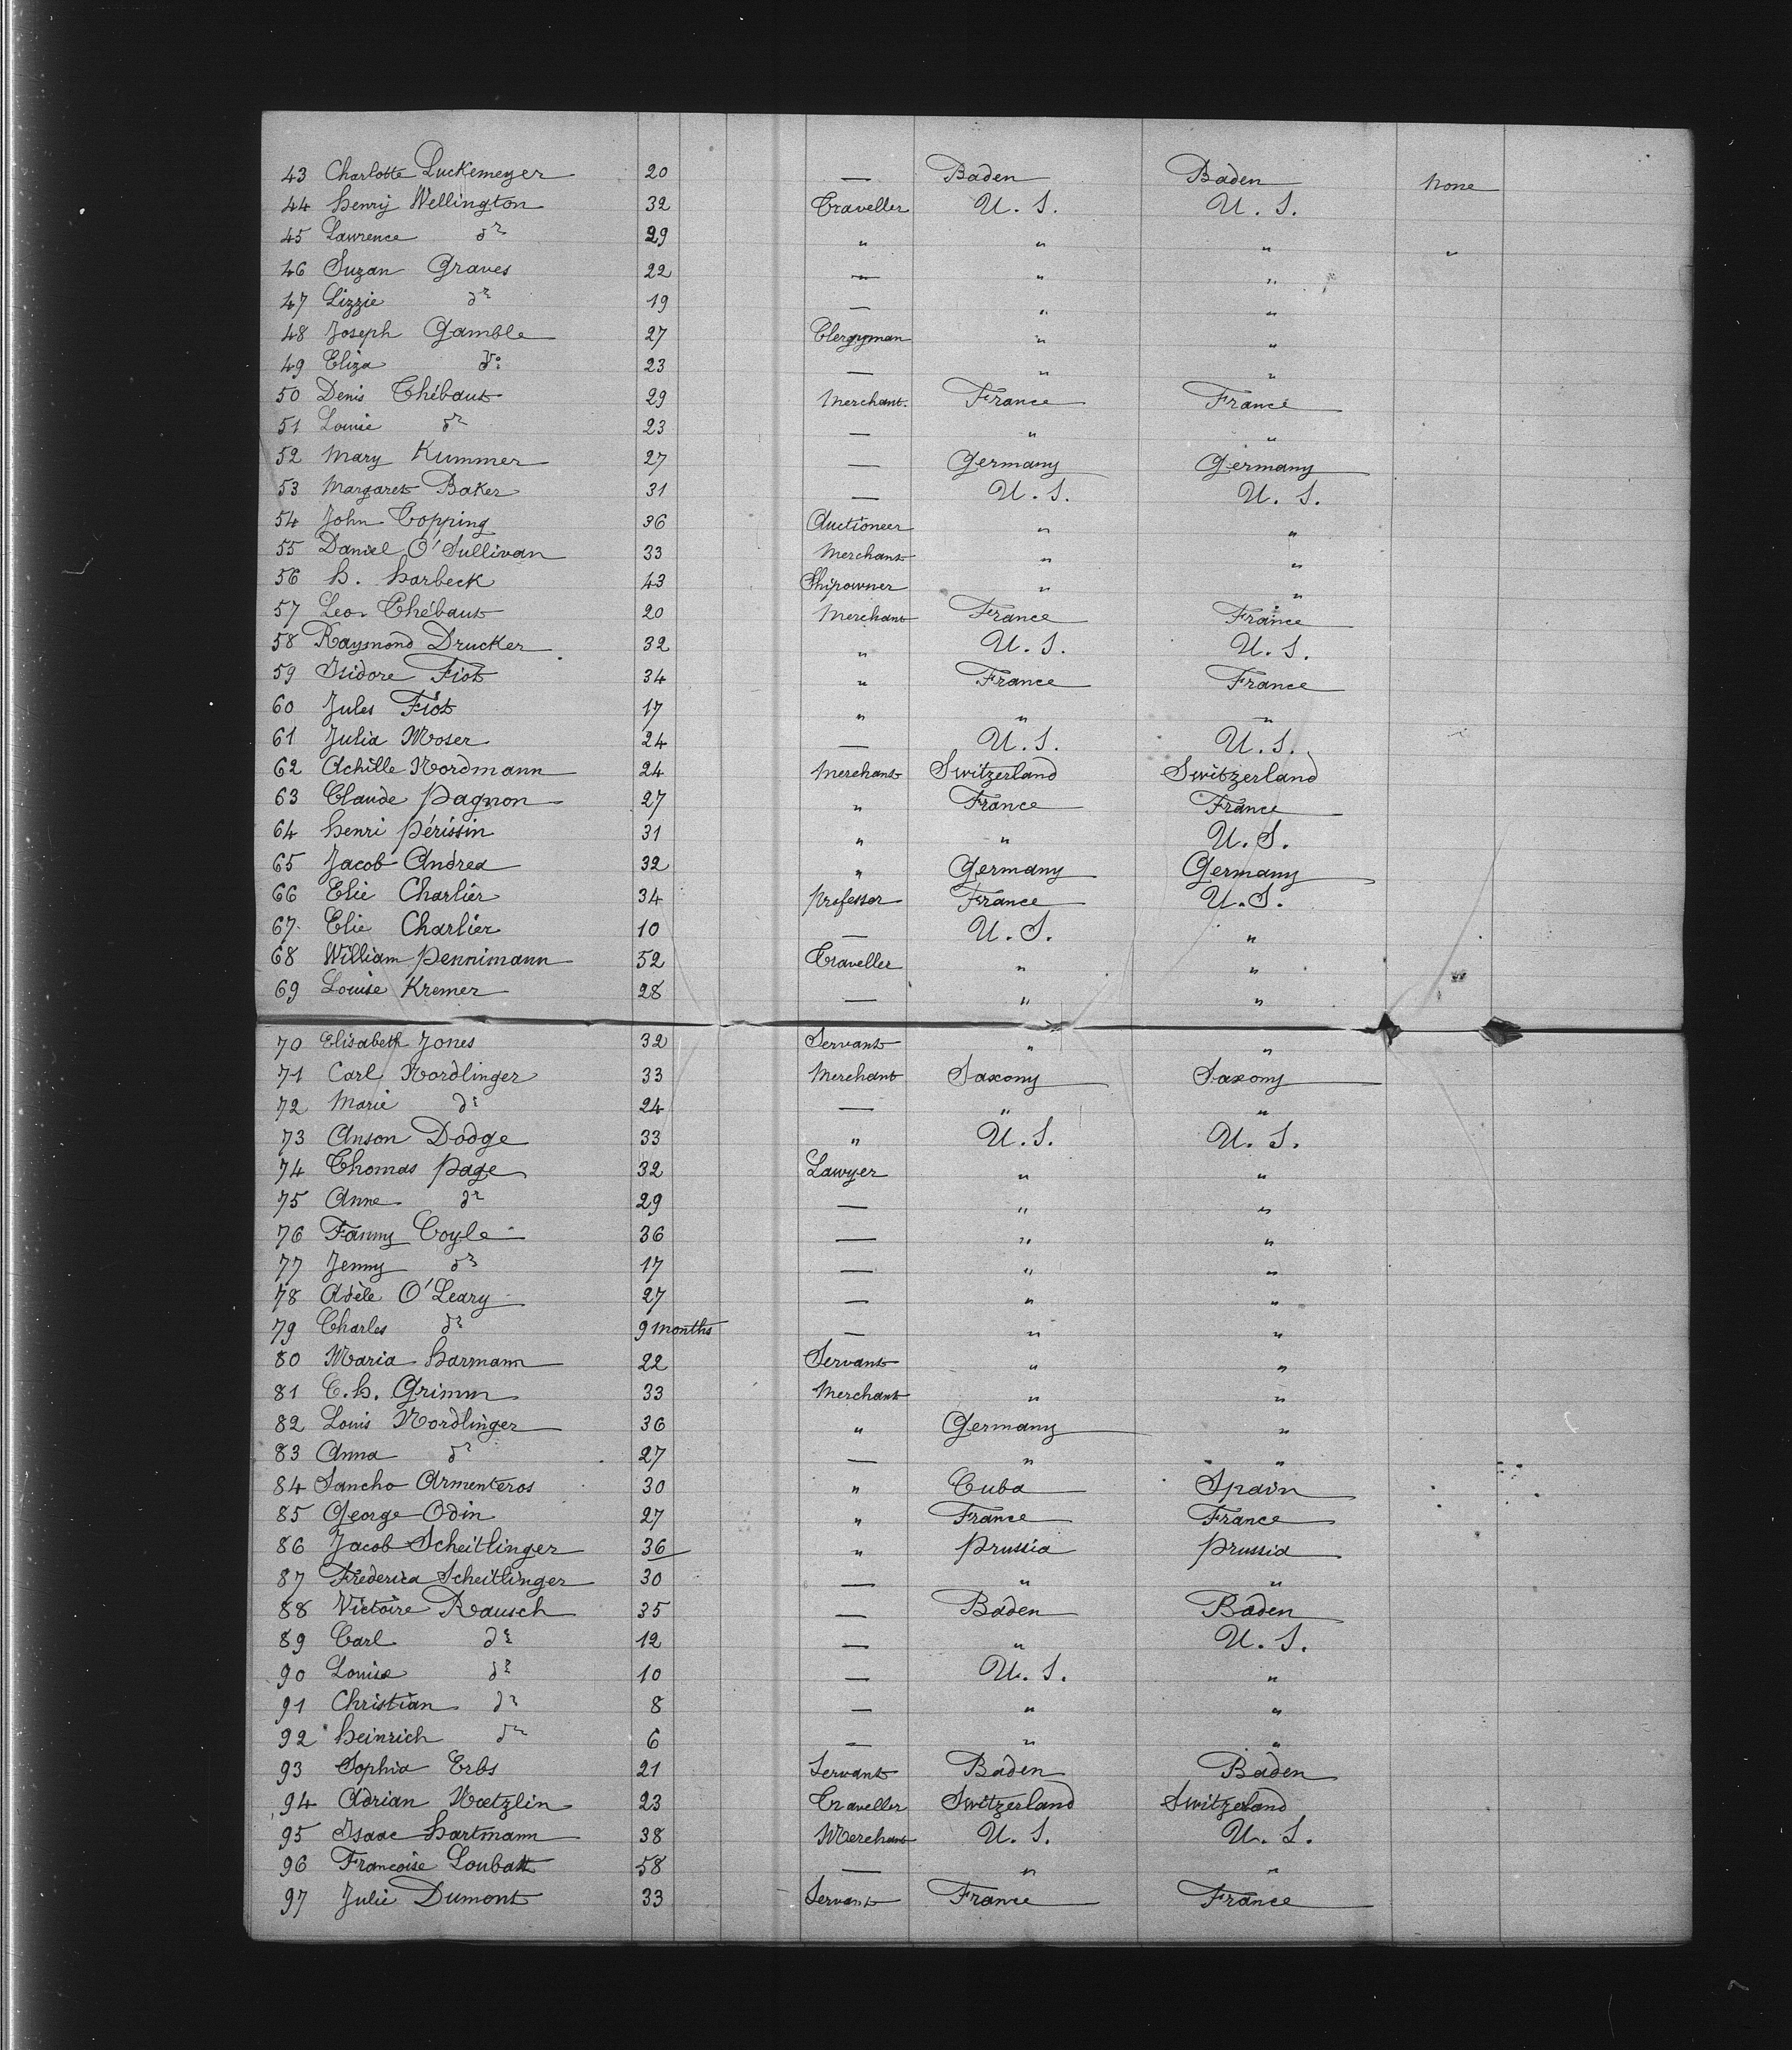 43 Charlotte Luckemeyer 20 — Baden Baden None
44 Henry Wellington 32 Traveller U. S. U. S.
45 Lawrence do 29 " " " "
46 Suzan Graves 22 — " "
47 Lizzie do 19 — " "
48 Joseph Gamble 27 Clergyman " "
49 Eliza do 23 — " "
50 Denis Thébaut 29 Merchant France France
51 Louise do 23 — " "
52 Mary Kummer 27 — Germany Germany
53 Margaret Baker 31 — U. S. U. S.
54 John Copping 36 Auctioneer " "
55 Daniel O'Sullivan 33 Merchant " "
56 H. Harbeck 43 Shipowner " "
57 Leon Thébaut 20 Merchant France France
58 Raymond Drucker 32 " U. S. U. S.
59 Isidore Fiot 34 " France France
60 Jules Fiot 17 " " "
61 Julia Moser 24 — U. S. U. S.
62 Achille Nordmann 24 Merchant Switzerland Switzerland
63 Claude Pagnon 27 " France France
64 Henri Périssin 31 " " U. S.
65 Jacob Andrea 32 " Germany Germany
66 Elie Charlier 34 Professor France U. S.
67 Elie Charlier 10 — U. S. "
68 William Pennimann 52 Traveller " "
69 Louise Kremer 28 — " "
70 Elisabeth Jones 32 Servant " "
71 Carl Nordlinger 33 Merchant Saxony Saxony
72 Marie do 24 — " "
73 Anson Dodge 33 " U. S. U. S.
74 Thomas Page 32 Lawyer " "
75 Anne do 29 — " "
76 Fanny Coyle 36 — " "
77 Jenny do 17 — " "
78 Adèle O'Leary 27 — " "
79 Charles do 9 months — " "
80 Maria Harmann 22 Servant " "
81 C. H. Grimm 33 Merchant " "
82 Louis Nordlinger 36 " Germany "
83 Anna do 27 — " "
84 Sancho Armenteros 30 " Cuba Spain
85 George Odin 27 " France France
86 Jacob Scheitlinger 36 " Prussia Prussia
87 Frederica Scheitlinger 30 — " "
88 Victoire Rausch 35 — Baden Baden
89 Carl do 12 — " U. S.
90 Louise do 10 — U. S. "
91 Christian do 8 — " "
92 Heinrich do 6 — " "
93 Sophia Erbs 21 Servant Baden Baden
94 Adrian Nœtzlin 23 Traveller Switzerland Switzerland
95 Isaac Hartmann 38 Merchant U. S. U. S.
96 Francoise Loubatt 58 — " "
97 Julie Dumont 33 Servant France France